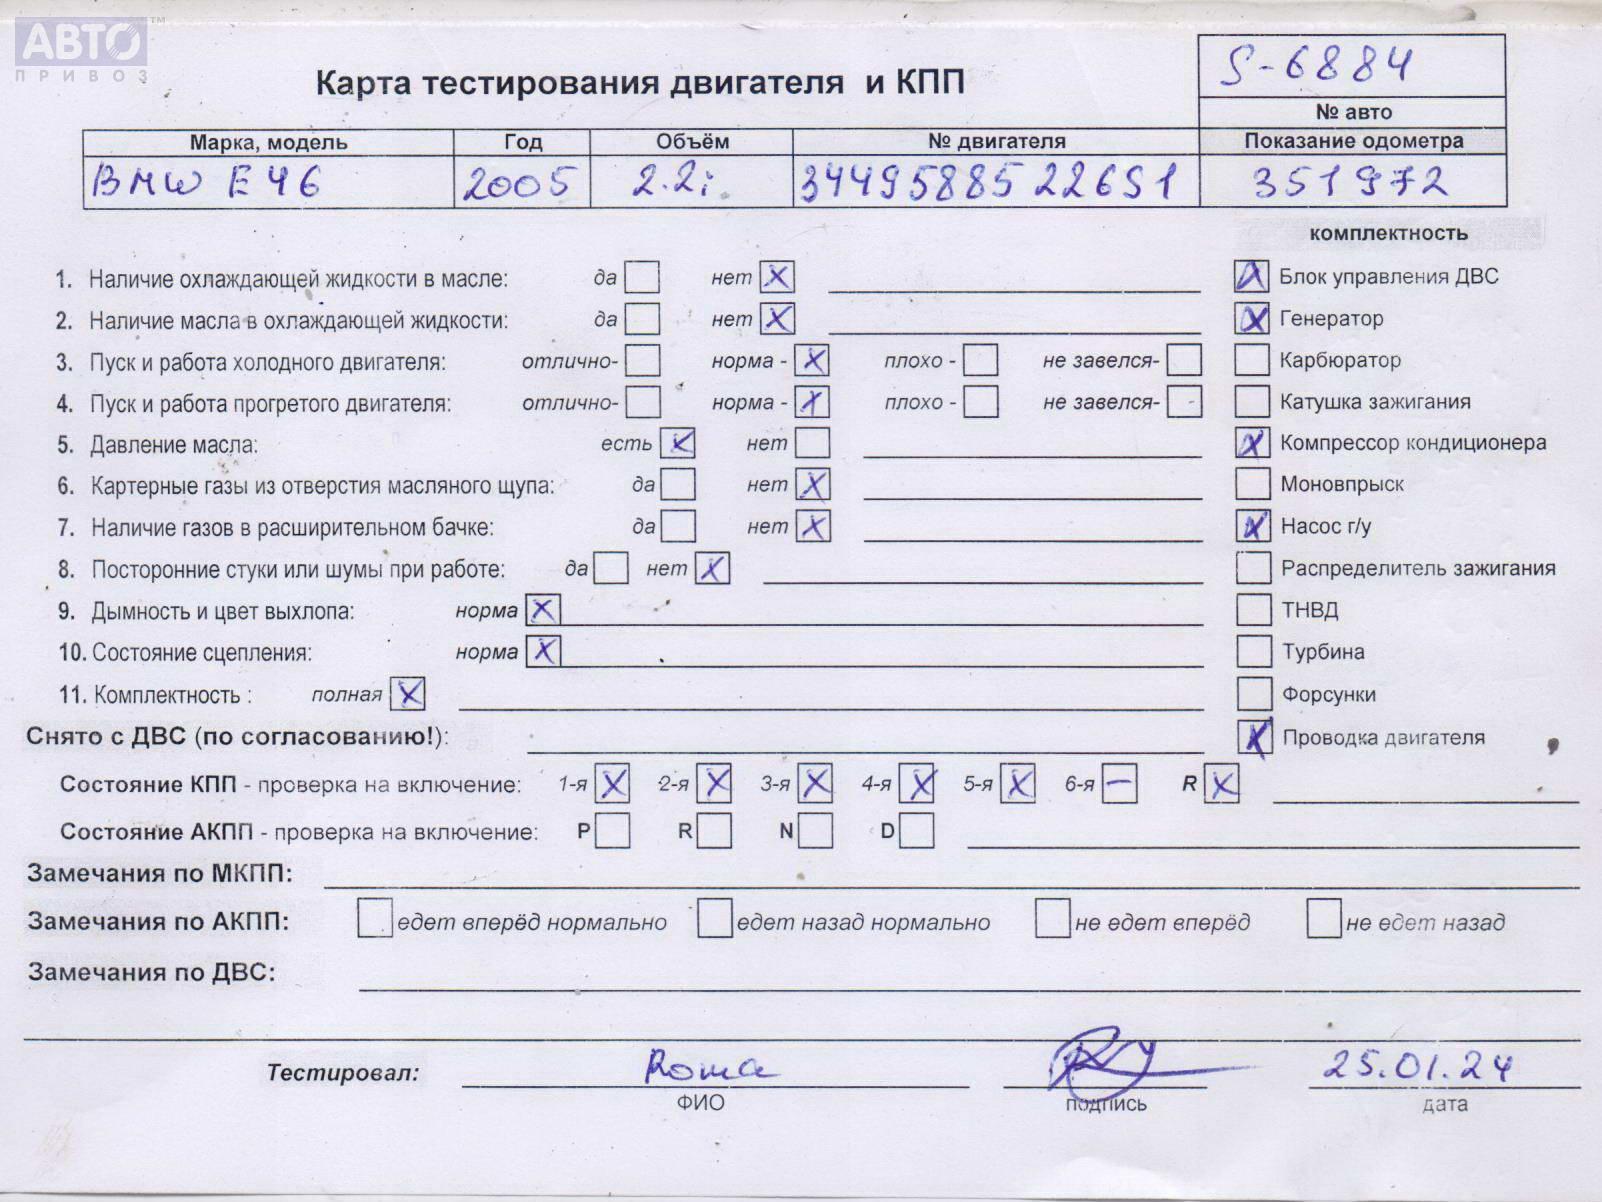 АВТО ™
ПРИВОЗ
S-6884
Карта тестирования двигателя и КПП
№ авто
Марка, модель Год Объём № двигателя Показание одометра
BMW E46 2005 2.2i 34495885 226S1 351972
комплектность
1. Наличие охлаждающей жидкости в масле: да нет X Блок управления ДВС X
2. Наличие масла в охлаждающей жидкости: да нет X Генератор X
3. Пуск и работа холодного двигателя: отлично- норма - X плохо - не завелся- Карбюратор
4. Пуск и работа прогретого двигателя: отлично- норма - X плохо - не завелся- Катушка зажигания
5. Давление масла: есть X нет X Компрессор кондиционера
6. Картерные газы из отверстия масляного щупа: да нет X Моновпрыск
7. Наличие газов в расширительном бачке: да нет X X Насос г/у
8. Посторонние стуки или шумы при работе: да нет X Распределитель зажигания
9. Дымность и цвет выхлопа: норма X ТНВД
10. Состояние сцепления: норма X Турбина
11. Комплектность : полная X Форсунки
Снято с ДВС (по согласованию!): X Проводка двигателя
Состояние КПП - проверка на включение: 1-я X 2-я X 3-я X 4-я X 5-я X 6-я - R X
Состояние АКПП - проверка на включение: P R N D
Замечания по МКПП:
Замечания по АКПП: едет вперёд нормально едет назад нормально не едет вперёд не едет назад
Замечания по ДВС:
Тестировал: Roma 25.01.24
ФИО подпись дата